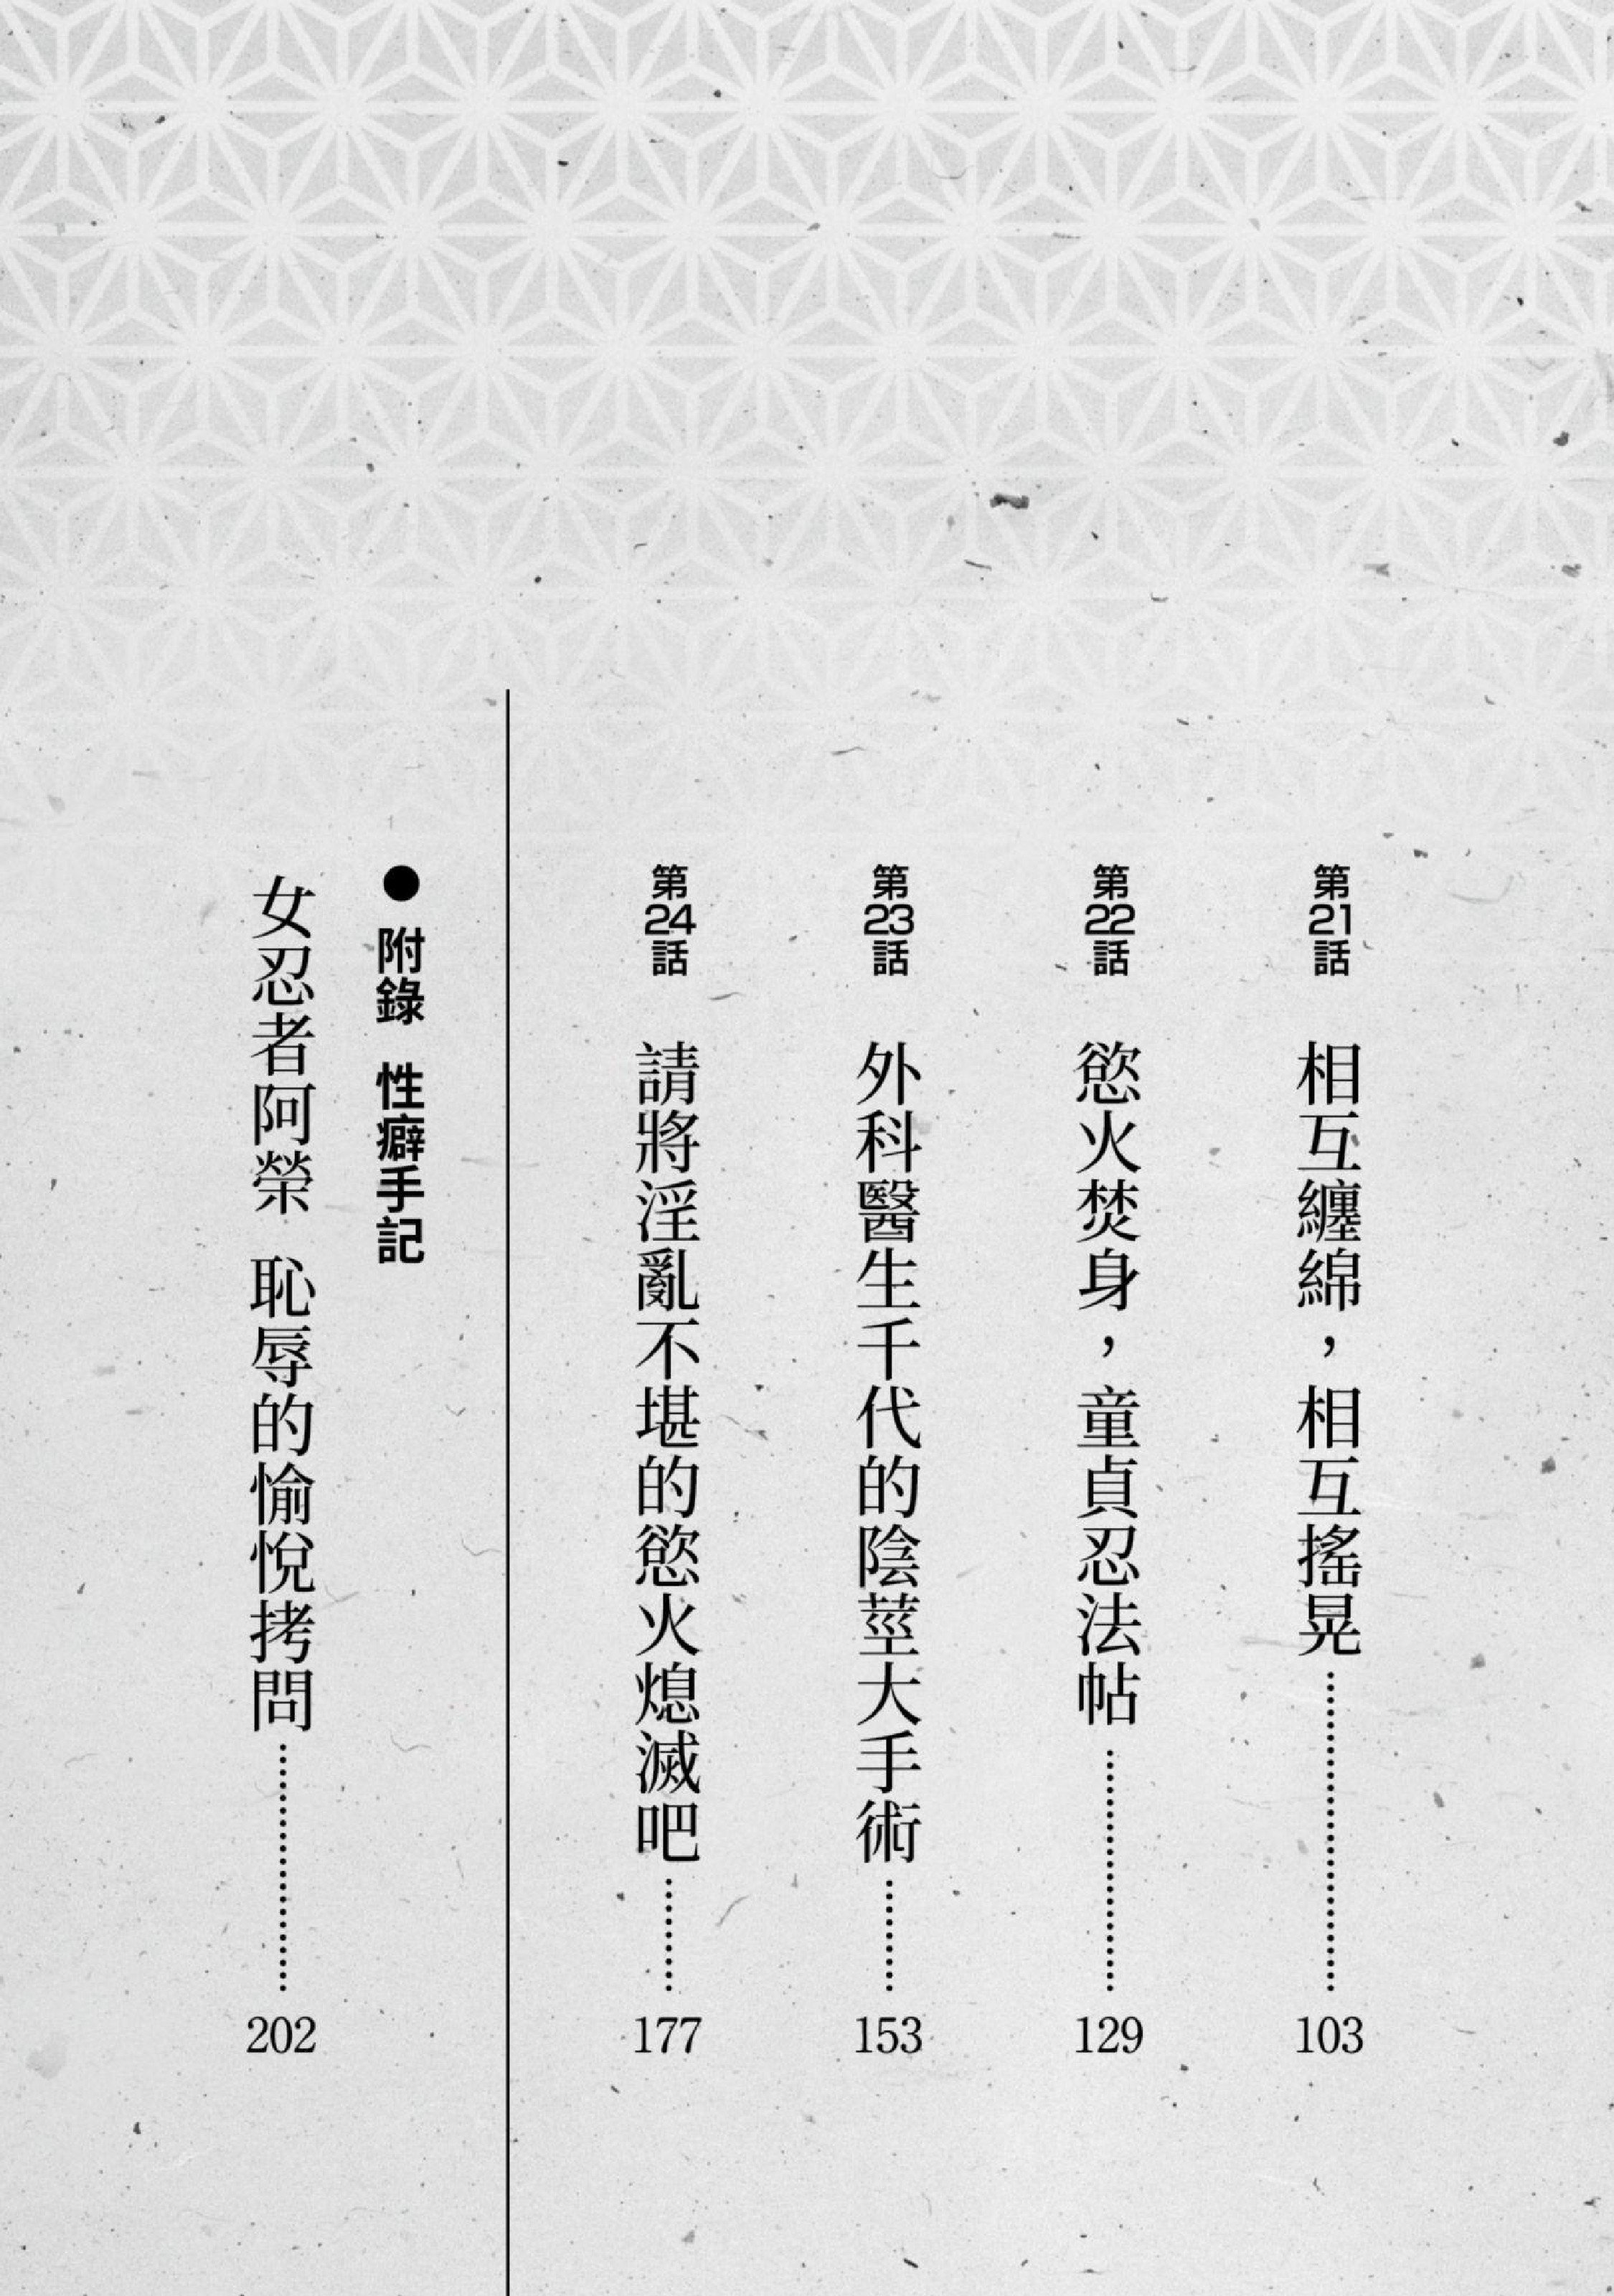 第21話 相互纏綿，相互搖晃 103
第22話 慾火焚身，童貞忍法帖 129
第23話 外科醫生千代的陰莖大手術 153
第24話 請將淫亂不堪的慾火熄滅吧 177
● 附錄 性癖手記
女忍者阿榮 恥辱的愉悅拷問 202